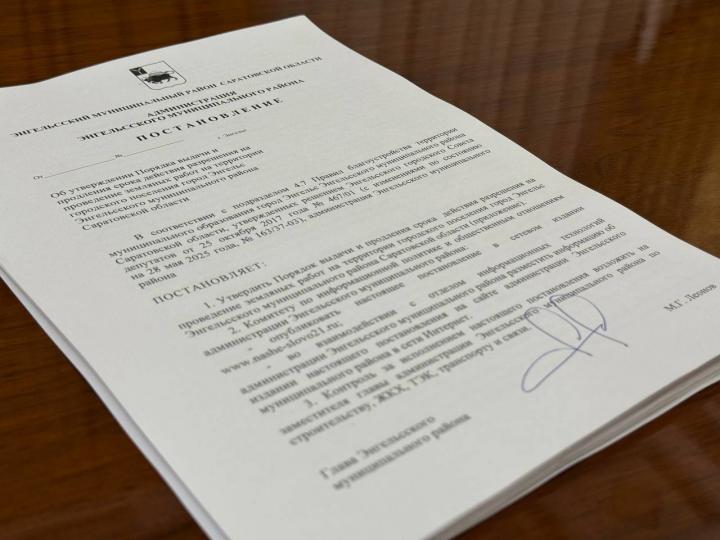 ЭНГЕЛЬССКИЙ МУНИЦИПАЛЬНЫЙ РАЙОН САРАТОВСКОЙ ОБЛАСТИ
АДМИНИСТРАЦИЯ
ЭНГЕЛЬССКОГО МУНИЦИПАЛЬНОГО РАЙОНА
ПОСТАНОВЛЕНИЕ
От №
г. Энгельс
Об утверждении Порядка выдачи и
продления срока действия разрешения на
проведение земляных работ на территории
городского поселения город Энгельс
Энгельсского муниципального района
Саратовской области
В соответствии с подразделом 4.7 Правил благоустройства территории
муниципального образования город Энгельс Энгельсского муниципального района
Саратовской области, утвержденных решением Энгельсского городского Совета
депутатов от 25 октября 2017 года № 467/01 (с изменениями по состоянию
на 28 мая 2025 года, № 163/37-03), администрация Энгельсского муниципального
района
ПОСТАНОВЛЯЕТ:
1. Утвердить Порядок выдачи и продления срока действия разрешения на
проведение земляных работ на территории городского поселения город Энгельс
Энгельсского муниципального района Саратовской области (приложение).
2. Комитету по информационной политике и общественным отношениям
администрации Энгельсского муниципального района:
- опубликовать настоящее постановление в сетевом издании
www.nashe-slovo21.ru;
- во взаимодействии с отделом информационных технологий
администрации Энгельсского муниципального района разместить информацию об
издании настоящего постановления на сайте администрации Энгельсского
муниципального района в сети Интернет.
3. Контроль за исполнением настоящего постановления возложить на
заместителя главы администрации Энгельсского муниципального района по
строительству, ЖКХ, ТЭК, транспорту и связи.
Глава Энгельсского
муниципального района
М.Г. Леонов